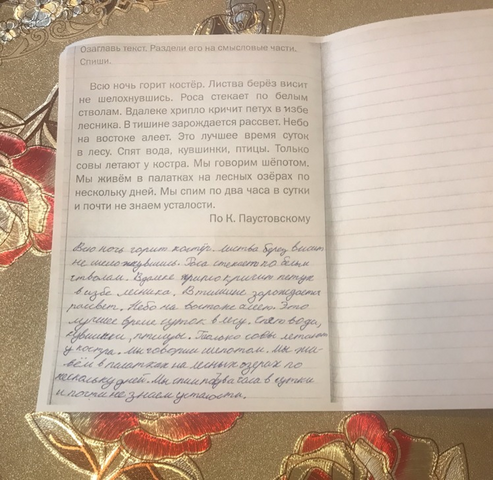 Озаглавь текст. Раздели его на смысловые части.
Спиши.
Всю ночь горит костёр. Листва берёз висит
не шелохнувшись. Роса стекает по белым
стволам. Вдалеке хрипло кричит петух в избе
лесника. В тишине зарождается рассвет. Небо
на востоке алеет. Это лучшее время суток
в лесу. Спят вода, кувшинки, птицы. Только
совы летают у костра. Мы говорим шёпотом.
Мы живём в палатках на лесных озёрах по
нескольку дней. Мы спим по два часа в сутки
и почти не знаем усталости.
По К. Паустовскому
Всю ночь горит костёр. Листва берёз висит
не шелохнувшись. Роса стекает по белым
стволам. Вдалеке хрипло кричит петух
в избе лесника. В тишине зарождается
рассвет. Небо на востоке алеет. Это
лучшее время суток в лесу. Спят вода,
птицы. Только совы летают
у костра. Мы говорим шепотом. Мы жи-
вём в палатках на лесных озерах по
нескольку дней. Мы спим по два часа в сутки
и почти не знаем усталости.